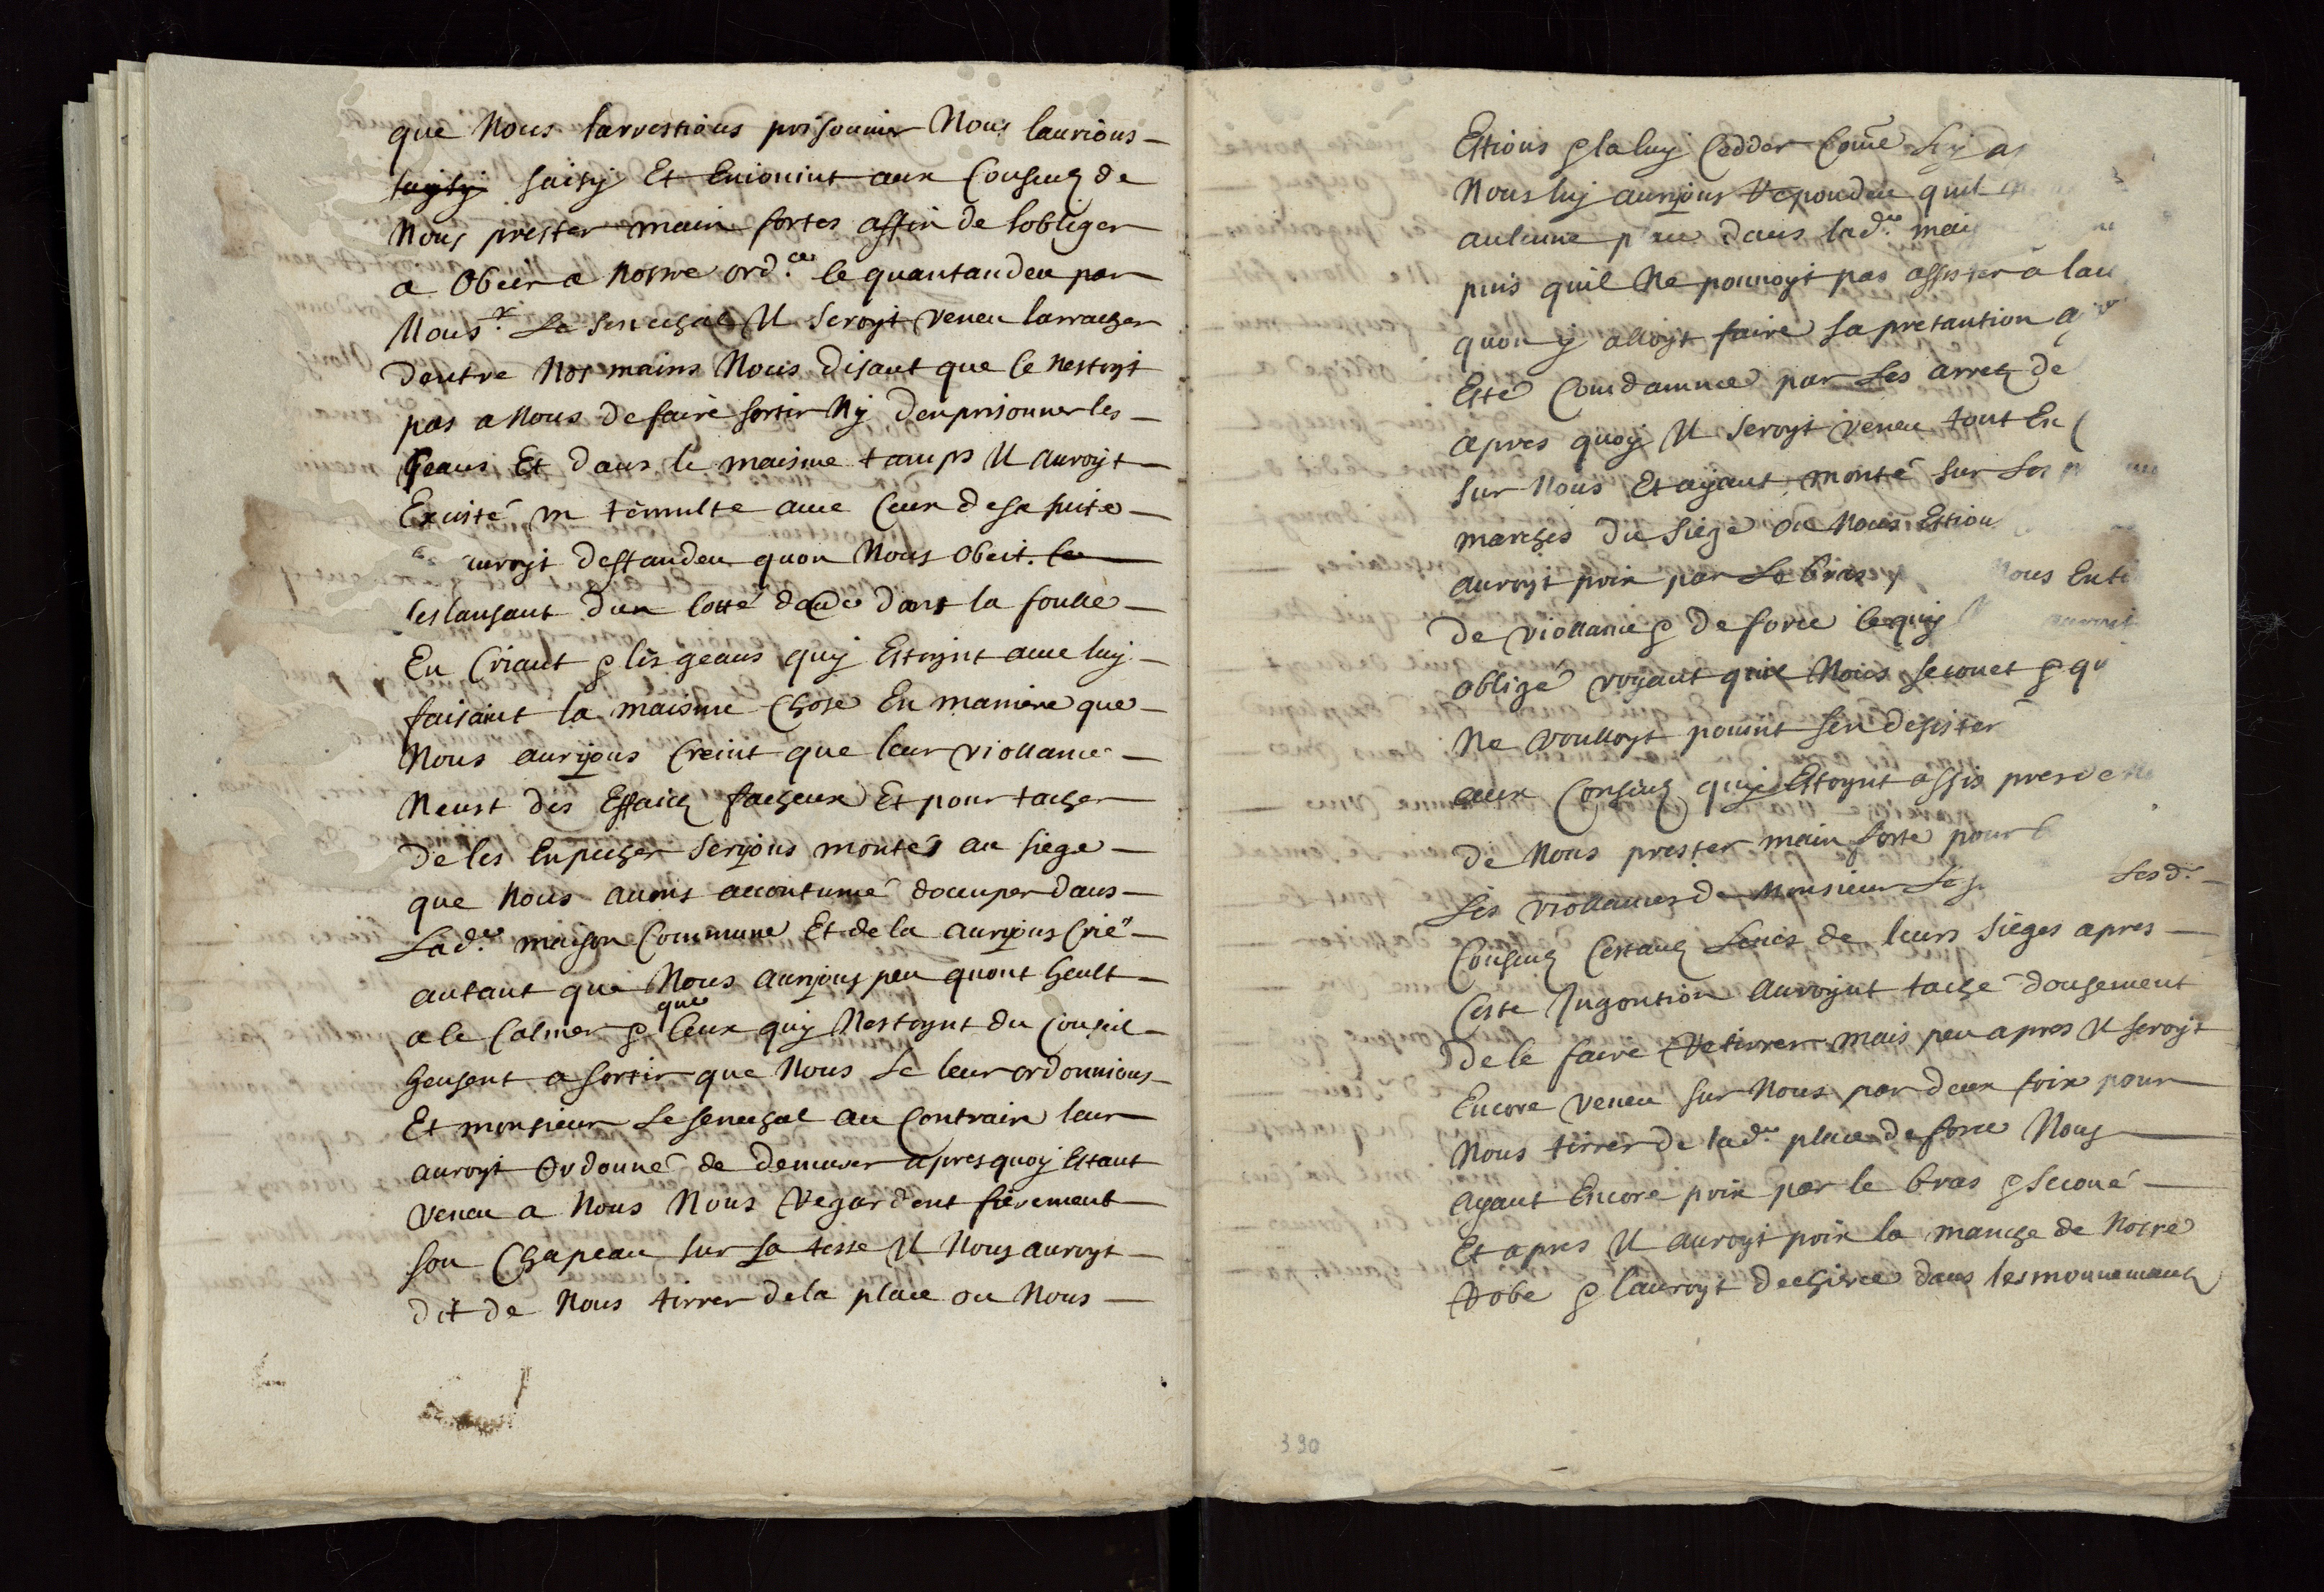 que Nous larrestions prisonnier Nous laurions
saisy Et Enionint aux Consulz de
Nous prester main fortes affin de lobliger
a Obeir a Nostre ord.ce le quantandeu par
Mons.r Le Senechal Il Seroyt veneu larracher
dentre Nos mains Nous disant que ce nestoyt
pas a Nous de faire sortir Ny denprisonner les
geans Et dans le maisme tamps Il auroyt
Excisté un temulte avec Ceux de sa suite
auroyt deffandeu quon Nous obeit
ceslansant dun costé dans la foulle
En Criant & les geans quy Estoynt avec luy
faisaint la maisme Chose En maniere que
Nous auryons Creint que leur viollance
Neust des Effaictz facheux Et pour tacher
de les Enpecher seryons montés au siege
que Nous avons accoutumé doccuper dans
Lad.e maison Commune Et de la auryons Crié
autant que Nous auryons peu quont heult
a le Calmer & que Ceux quy Nestoynt du Conseil
heusent a sortir que Nous Le leur ordonnions
Et monsieur Le senechal au Contraire leur
auroyt Ordonné de demurer apres quoy Estant
veneu a Nous Nous Regardent fierement
son Chapeau sur sa teste Il Nous auroyt
dit de Nous tirrer de la place ou Nous
Estions & la luy Cedder Come
Nous luy auryons Repondeu quil
aulcune dans lad.e mai
puis quil Ne pouvoyt pas assister a
quon y alloyt faire sa pretantion
Esté Condamnee par Les arretz de
apres quoy Il Seroyt veneu tout En
sur Nous Et ayant monté sur Les
marches du siege ou Nous Estion
auroyt prix par Le bras Nous
de viollance & de force ce quy auroit
obligé voyant quil Nous secouet & qu
Ne voulloyt pouint sen desister
aux Consulz quy Estoynt assis pres de
de Nous prester main forte pour
Les viollances de Monsieur Le Lesd.
Consulz Cestantz Levés de leurs sieges apres
Ceste Ingontion auroynt taché dousement
de le faire Retirrer mais peu apres Il seroyt
Encore veneu sur Nous par deux foix pour
Nous tirrer de lad.e place de force Nous
ayant Encore prix par le bras & secoué
Et apres Il auroyt prix la manche de Nostre
Robe & lauroyt dechiree dans les mouvemantz
390